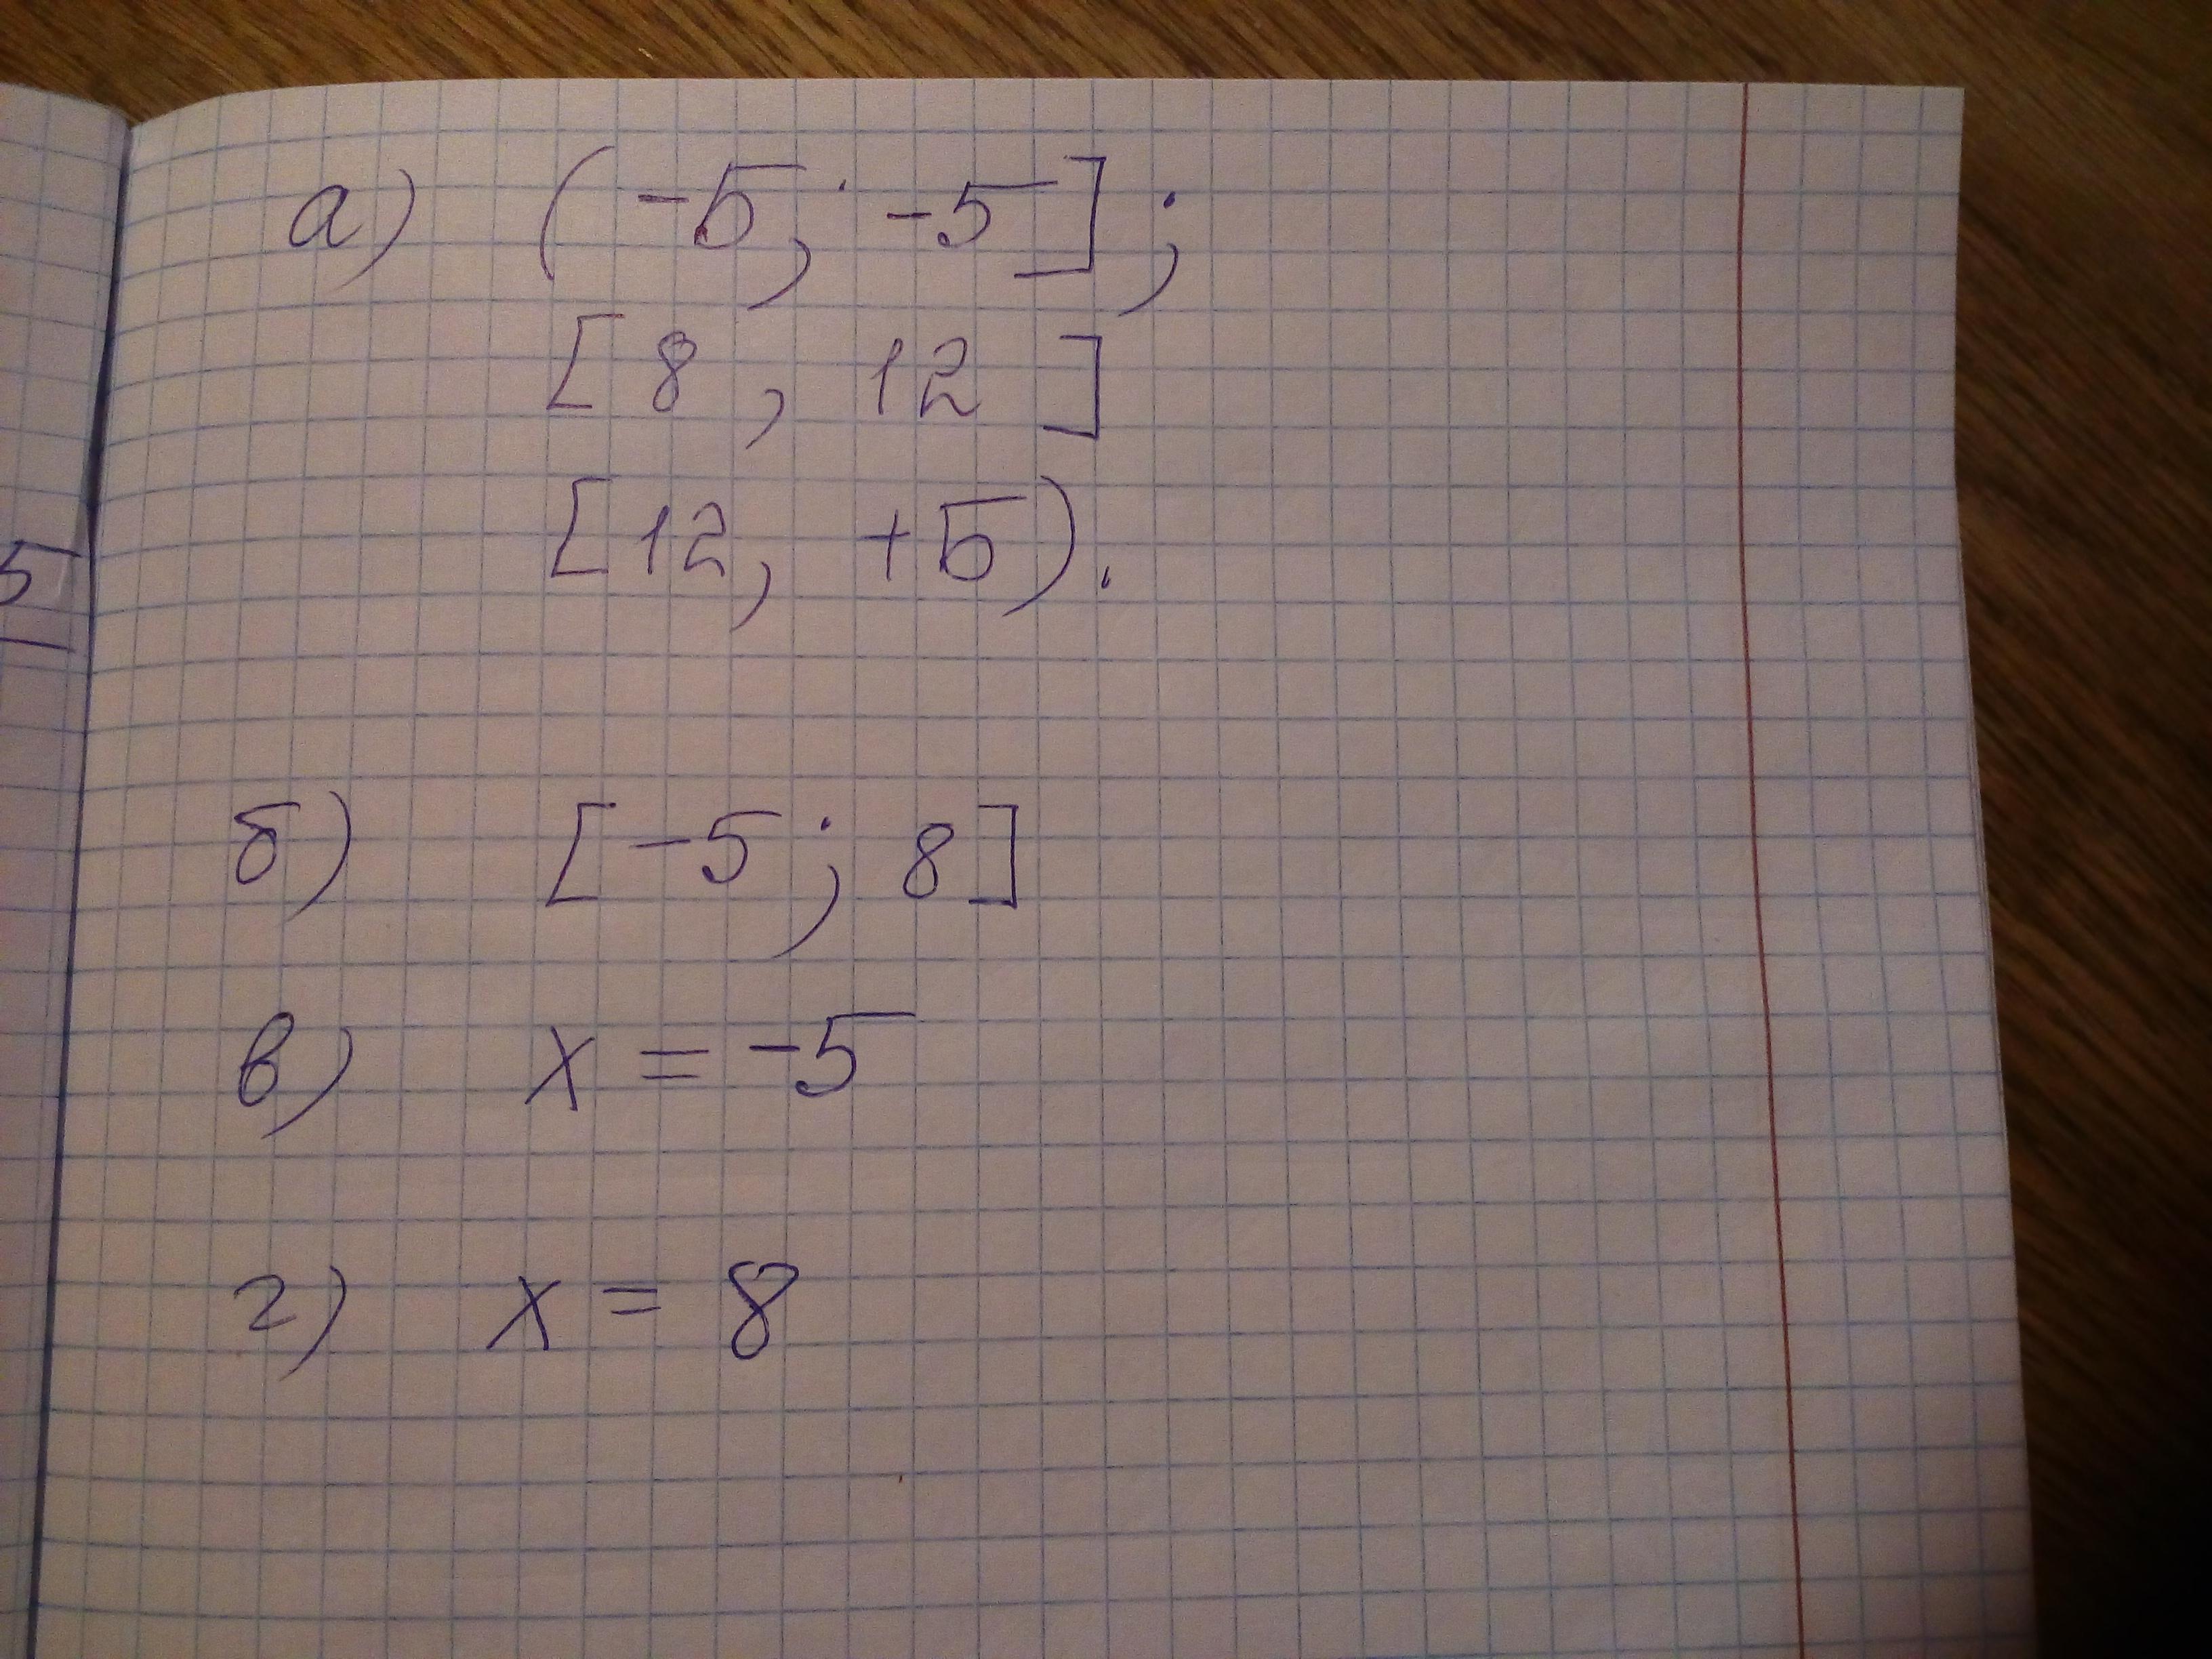 5
а) (-Б; -5];
[8, 12]
[12, +Б).
б) [-5; 8]
в) x = -5
г) x = 8